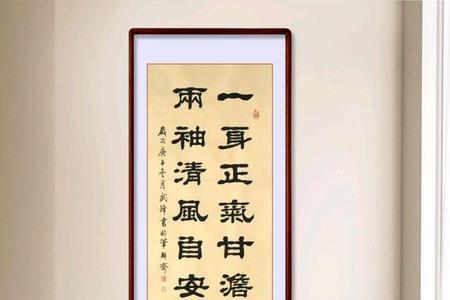 一身正氣甘澹
兩袖清風自安
歲次庚子冬月書於筆耕齋